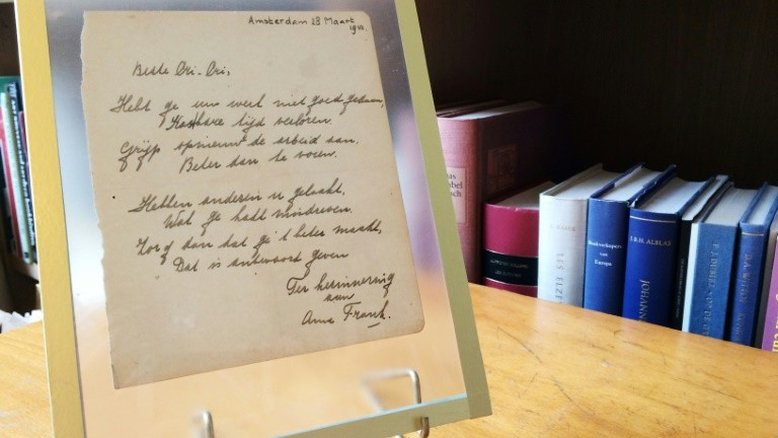 Amsterdam 28 Maart
1942.
Beste Cri-Cri,
Hebt ge uw werk niet goed gedaan,
Kostbare tijd verloren.
Grijp opnieuw de arbeid aan.
Beter dan te voren.
Hebben anderen u gelaakt,
Wat ge hadt misdreven.
Zorg dan dat ge 't beter maakt,
Dat is antwoord geven
Ter herinnering
aan
Anne Frank.
LES ELZE
Boekverkopers
van
Europa
J.B.H. ALBLAS
JOHANN